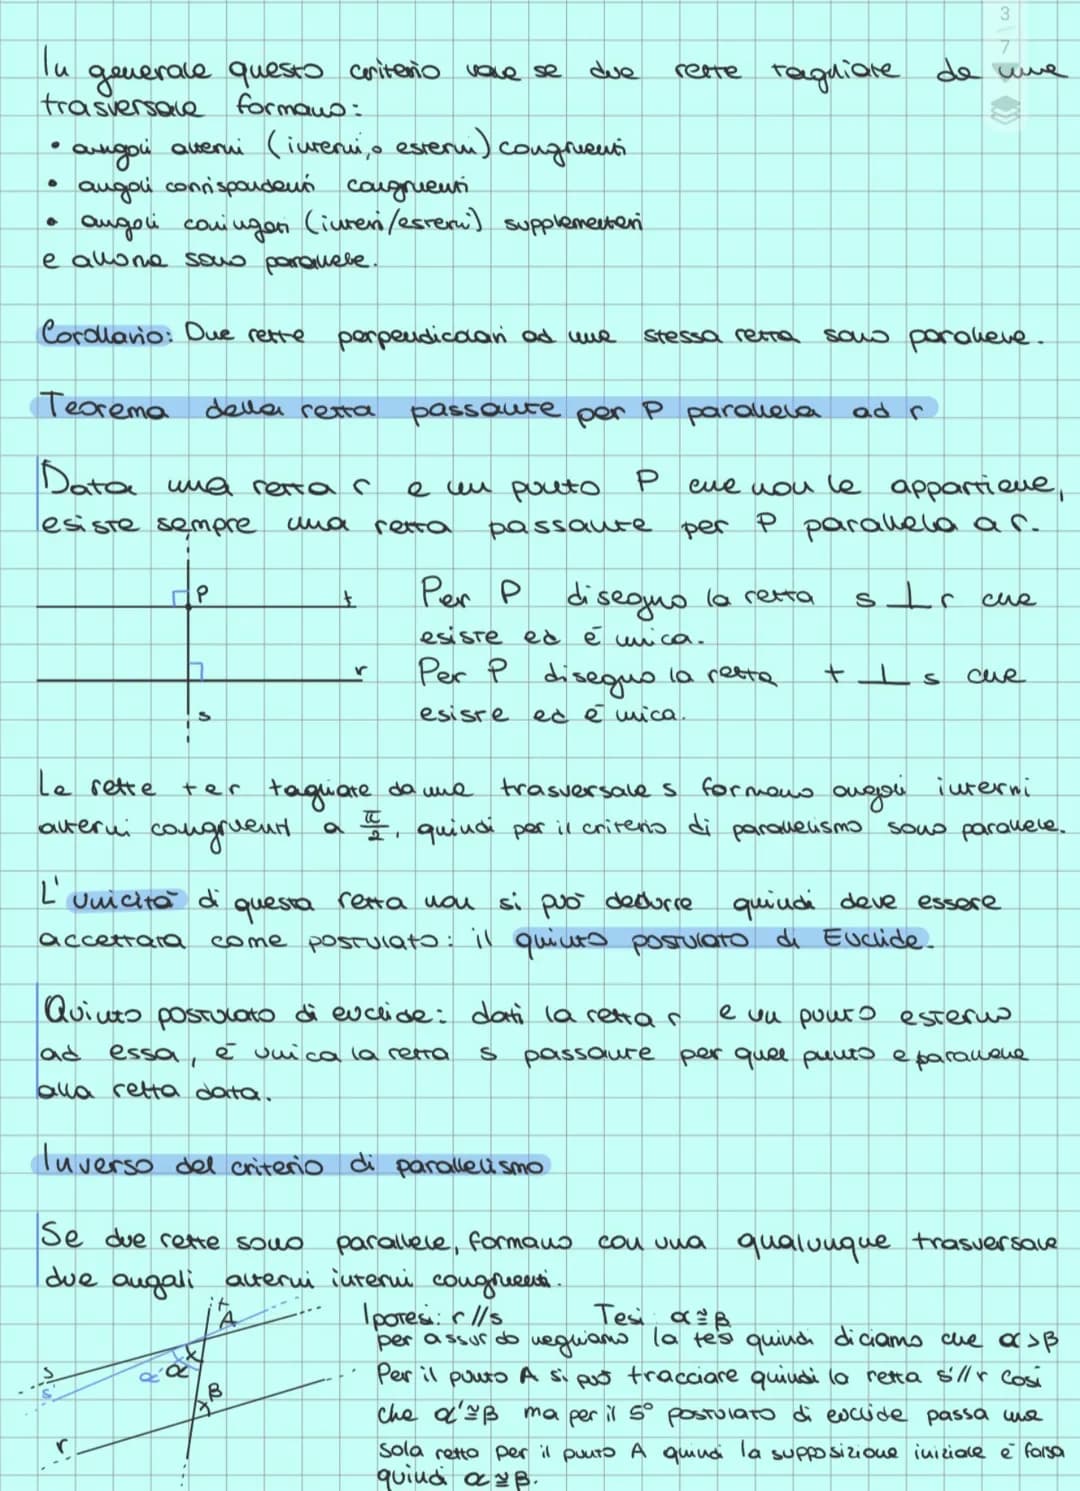 3
7
In generale questo criterio vale se due rette tagliate da una
trasversale formano:
• angoli alterni (interni,o esterni) congruenti
• angoli corrispondenti congruenti
• angoli coniugati (interni/esterni) supplementari
e allora sono parallele.
Corollario: Due rette perpendicolari ad una stessa retta sono parallele.
Teorema della retta passante per P parallela ad r
Data una retta r e un punto P che non le appartiene,
esiste sempre una retta passante per P parallela a r.
P
t
r
s
Per P disegno la retta s ⊥ r che
esiste ed é unica.
Per P disegno la retta t ⊥ s che
esiste ed é unica.
Le rette t e r tagliate da una trasversale s formano angoli interni
alterni congruenti a π/2, quindi per il criterio di parallelismo sono parallele.
L'unicità di questa retta non si può dedurre quindi deve essere
accettata come postulato: il quinto postulato di Euclide.
Quinto postulato di euclide: dati la retta r e un punto esterno
ad essa, é unica la retta s passante per quel punto e parallela
alla retta data.
Inverso del criterio di parallelismo
Se due rette sono parallele, formano con una qualunque trasversale
due angoli alterni interni congruenti.
t
A
s
s'
α'
α
B
r
Ipotesi: r // s Tesi: α ≅ β
per assurdo neghiamo la tesi quindi diciamo che α > β
Per il punto A si può tracciare quindi la retta s' // r così
che α' ≅ β ma per il 5° postulato di euclide passa una
sola retta per il punto A quindi la supposizione iniziale é falsa
quindi α ≅ β.